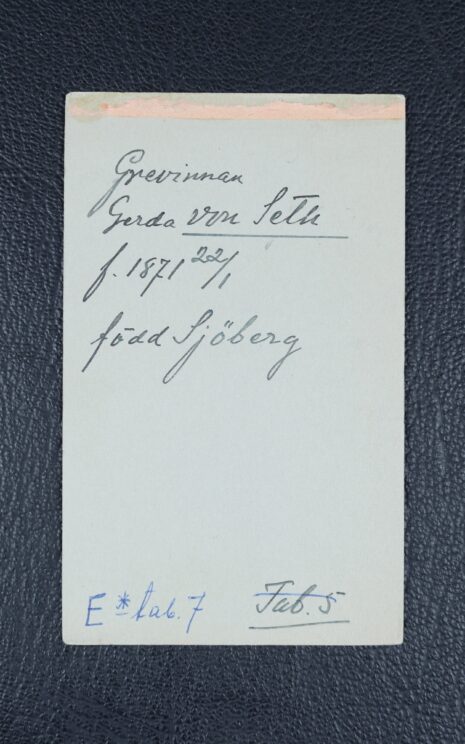 Grevinnan
Gerda von Seth
f. 1871 22/1
född Sjöberg
E * tab. 7 Tab. 5